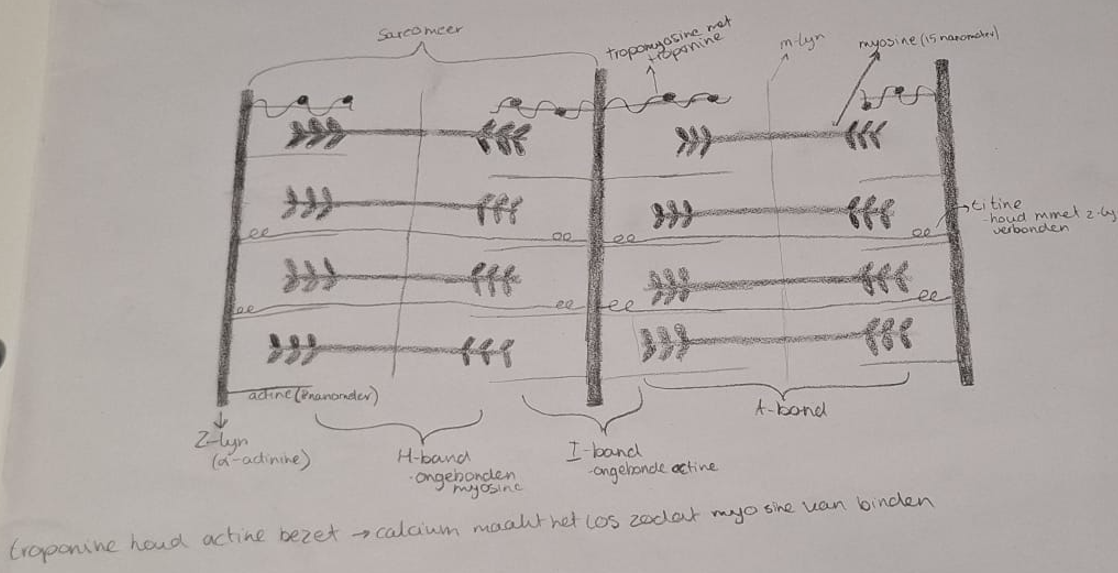 Sarcomeer
tropomyosine met
troponine
m-lyn
myosine (15 nanometer)
titine
-houd mmet z-ly
verbonden
actine (8nanometer)
Z-lyn
(α-actinine)
H-band
-ongebonden
myosine
I-band
-ongebonde actine
A-band
troponine houd actine bezet → calcium maakt het los zodat myosine kan binden